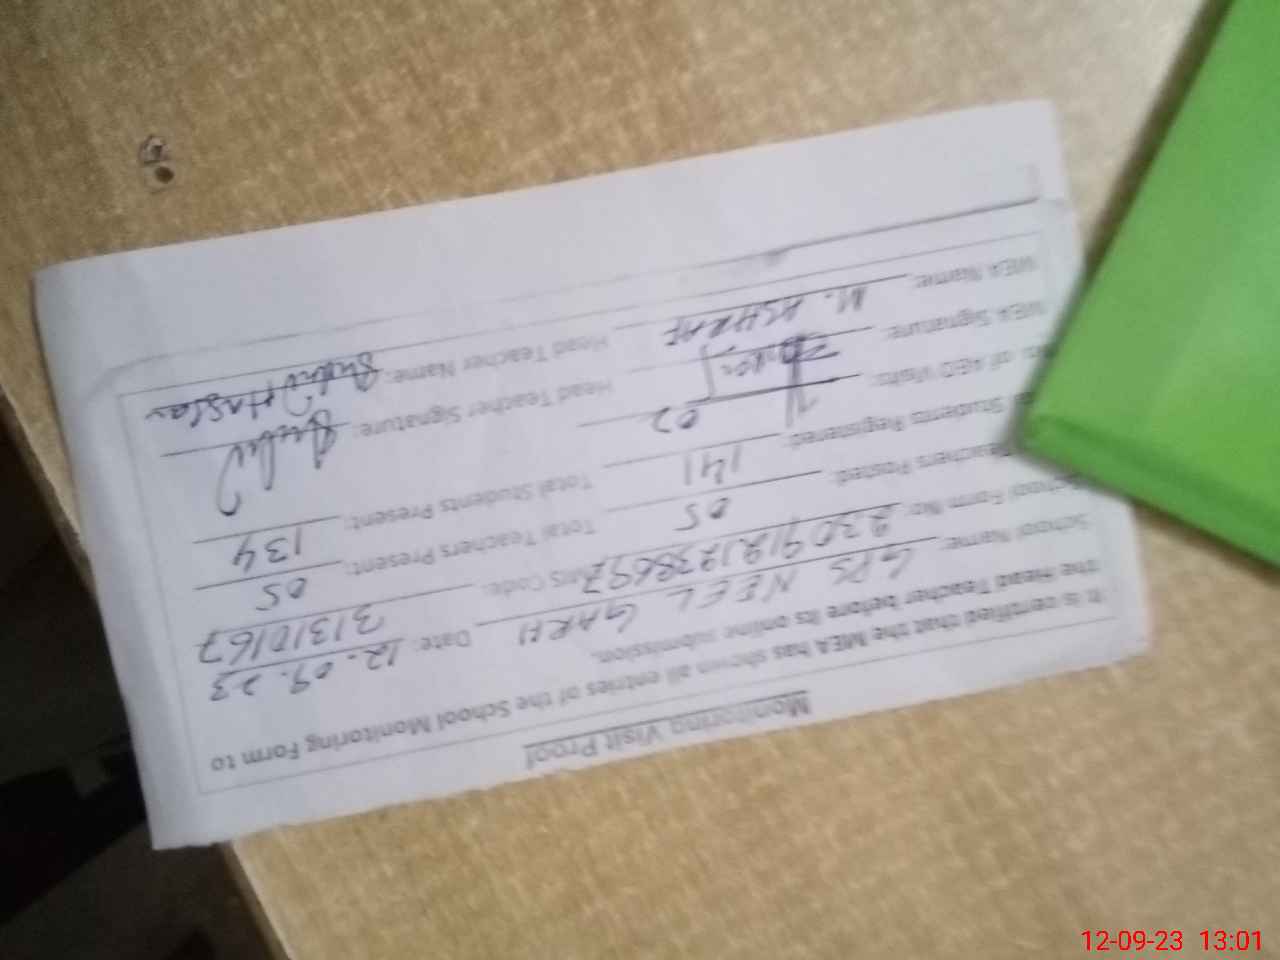 Monitoring Visit Proof
It is certified that the MEA has shown all entries of the School Monitoring Form to
the Head Teacher before its online submission.
School Name: GPS NEEL GARH Date: 12.09.23
School Form No: Emis Code: 31310167
Teachers Posted: 05 Total Teachers Present: 05
Students Registered: 141 Total Students Present: 134
No. of AEO Visits: 02
MEA Signature: Head Teacher Signature:
MEA Name: M. ASHRAF Head Teacher Name:
12-09-23 13:01